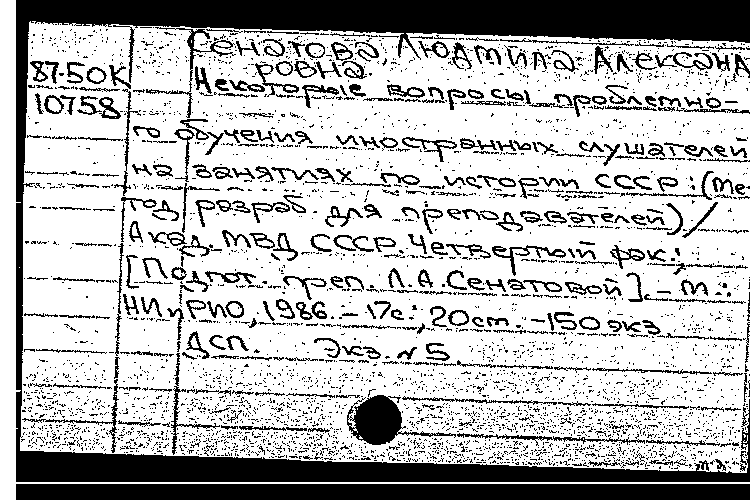 Сенатова, Людмила Александ
ровна.
87-50К
10758
Некоторые вопросы проблемно-
го обучения иностранных слушателей
на занятиях по истории СССР: (Ме-
тод. разраб. для преподавателей) /
Акад. МВД СССР. Четвертый фак.;
[Подгот. преп. Л.А. Сенатовой]. – М.:
НИиРИО, 1986. – 17с.; 20см. – 150 экз
ДСП. Экз. № 5.